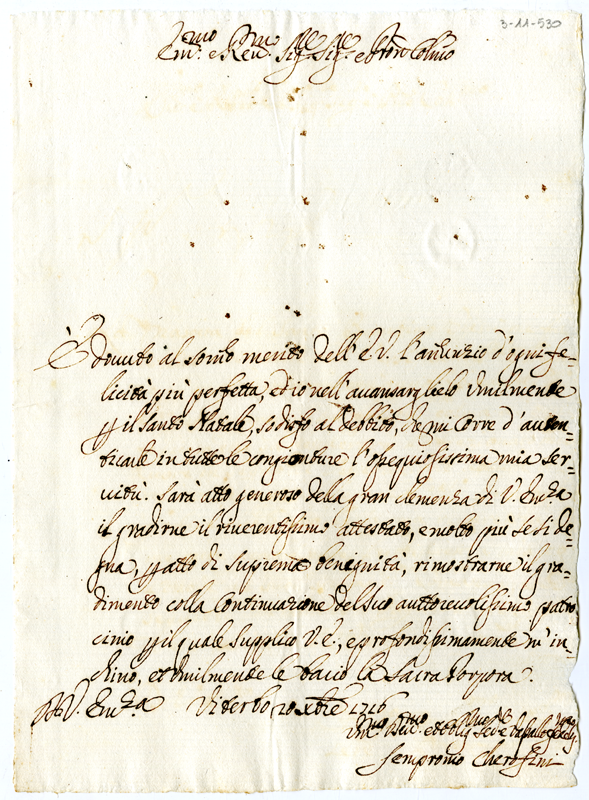 3-11-530
Em.mo e Rev.mo Sig.re Sig.re e Pron Colmo
È dovuto al som̃o merito dell'E.V. l'anñunzio d'ogni fe=
licità più perfetta, ed io nell'avanzarglielo Umilmente
p il Santo Natale, sodisfo al debbito, che mi corre d'auten=
ticarle in tutte le congionture l'ossequiosissima mia ser=
vitù. Sarà atto generoso della gran clemenza di V. Em.za
il gradirne il riverentissimo attestato, e molto più se si de=
gna, p atto di suprema benignità, rimostrarne il gra=
dimento colla Continuazione del suo auttorevolissimo patro
cinio p il quale supplico V.E., e profondissimamente m'in=
chino, et Umilmente le bacio la Sacra Porpora.
D V. Em.za Viterbo 20 Xbre 1716
Um.mo Dev.mo et Obblig.mo Ser.e
Sempronio Cherofini